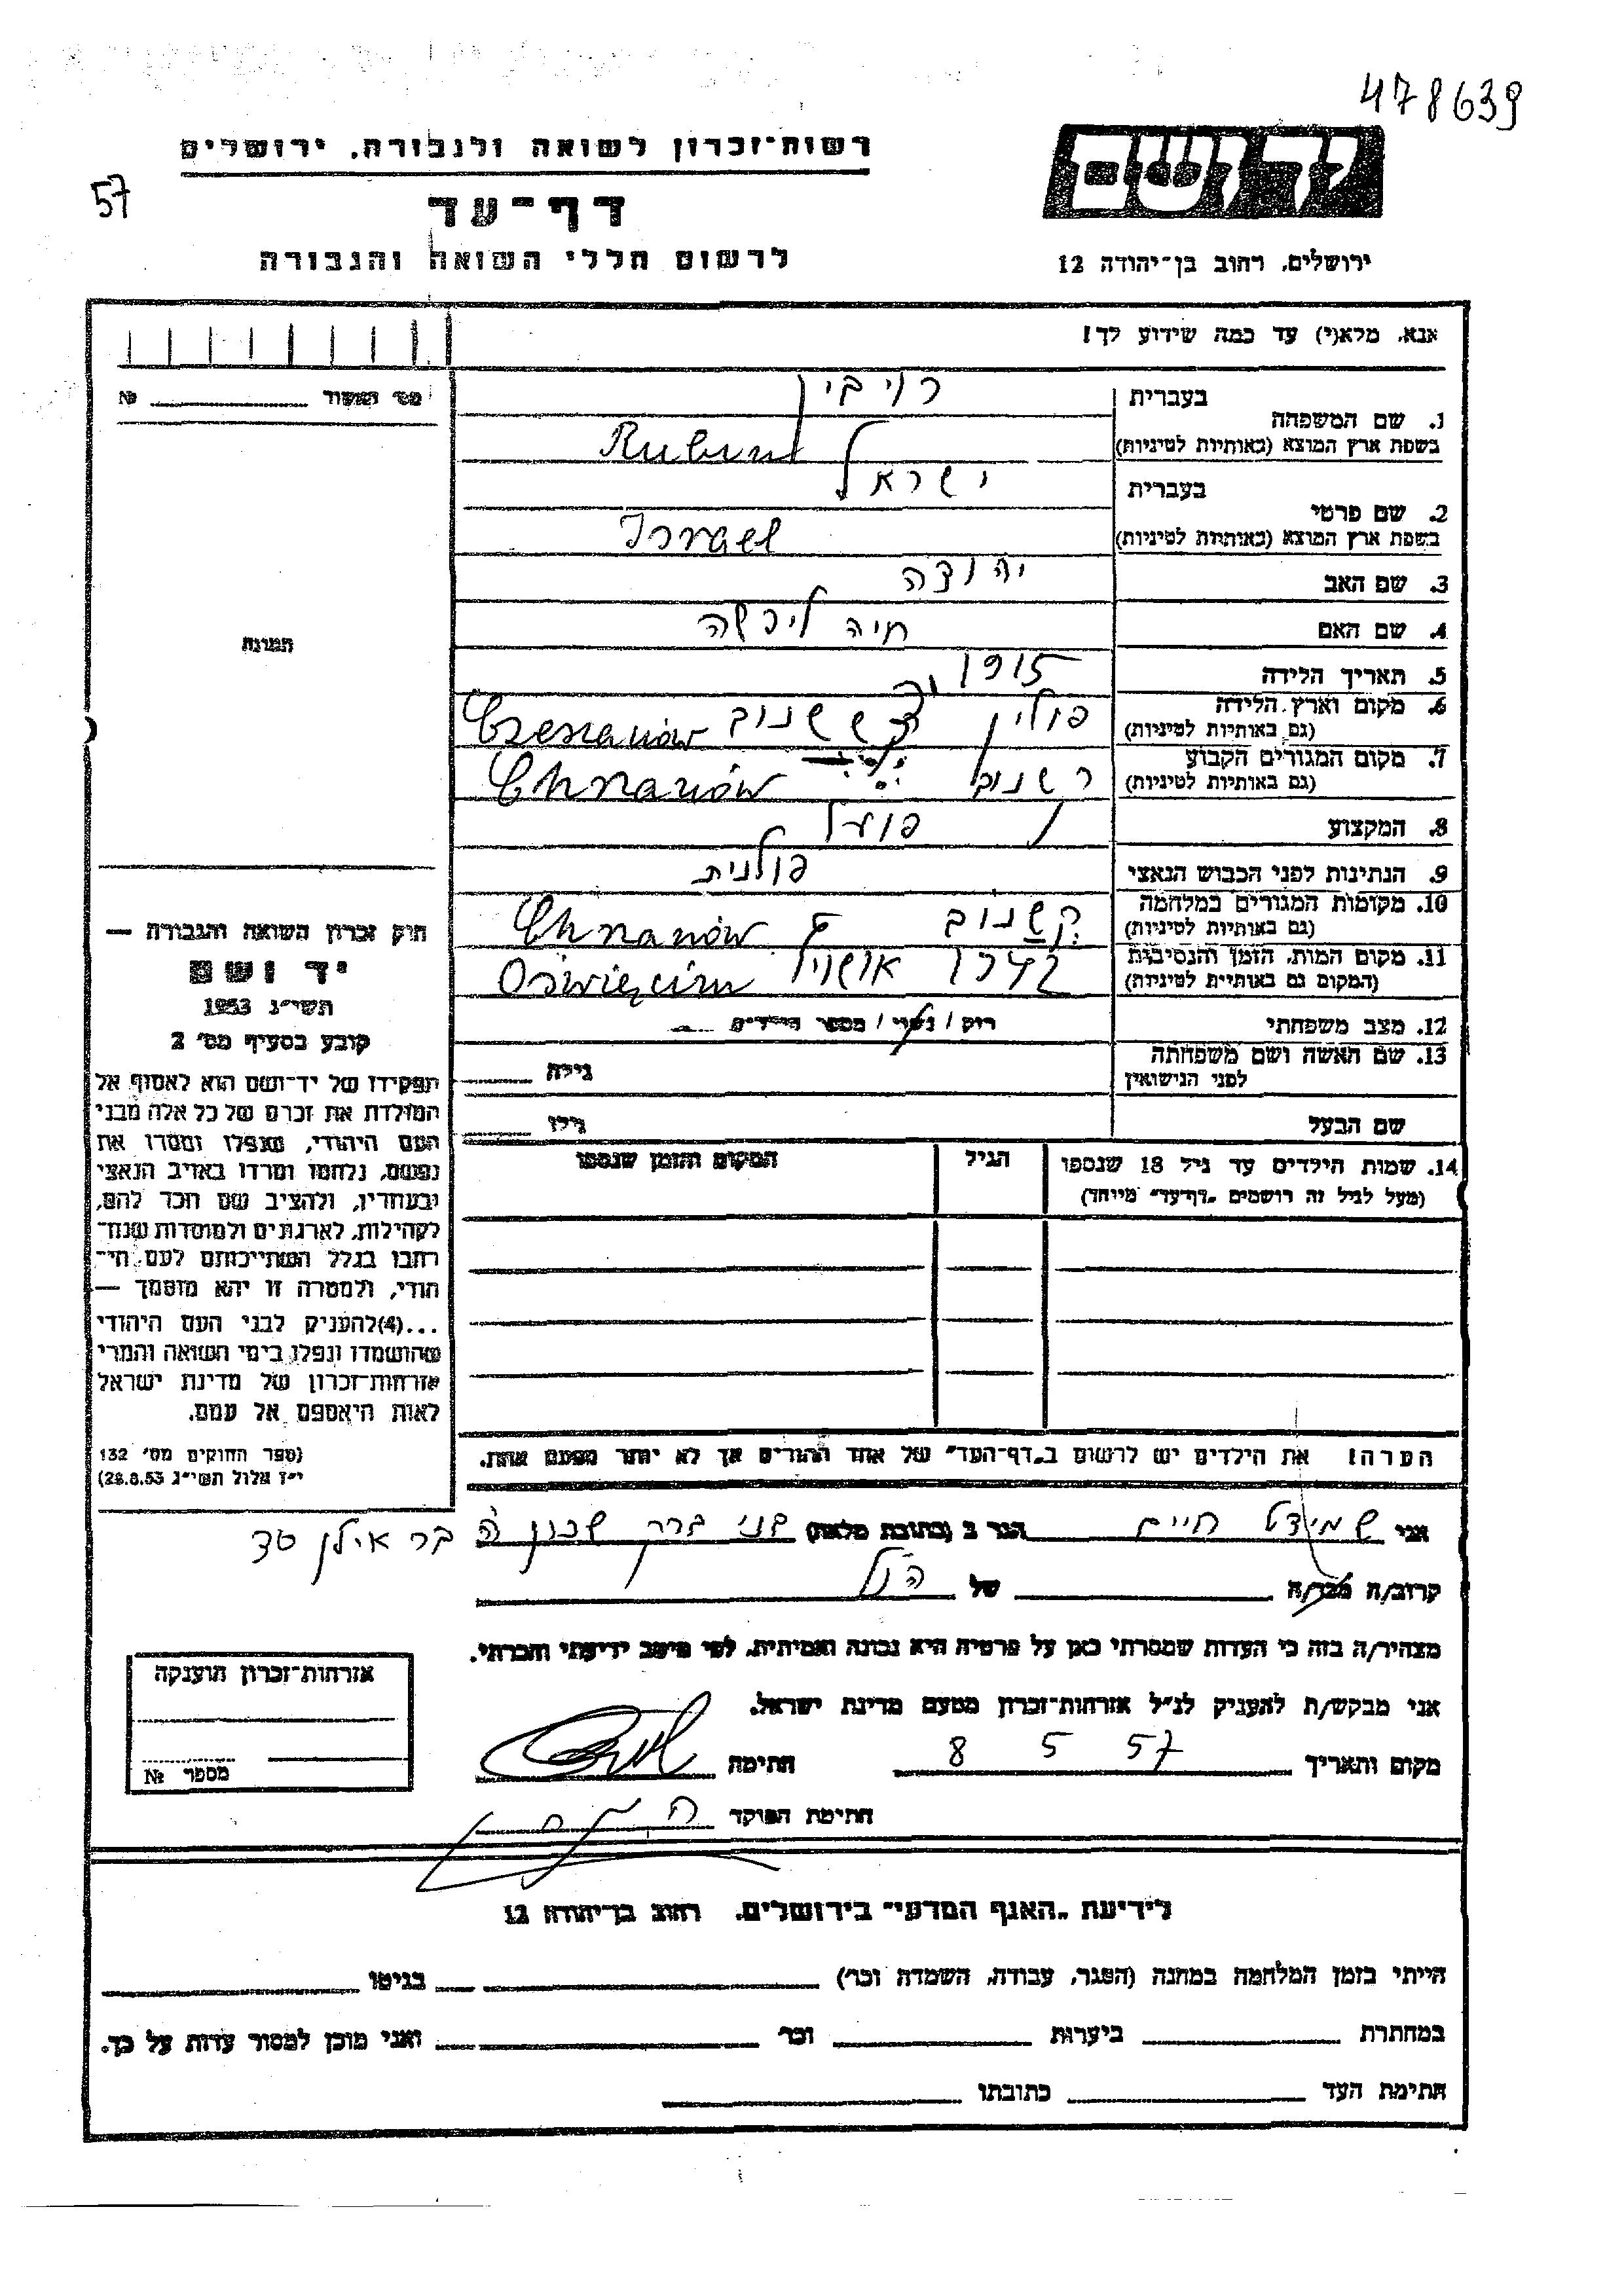 478639
רשות־זכרון לשואה ולגבורה, ירושלים
57
יד ושם
דף־עד
לרשום חללי השואה והגבורה
ירושלים, רחוב בן־יהודה 12
אנא, מלא(י) עד כמה שידוע לך!
מס' האשור № 
1. שם המשפחה
בעברית
רויבין
בשפת ארץ המוצא (באותיות לטיניות)
Rubin
2. שם פרטי
בעברית
ישראל
בשפת ארץ המוצא (באותיות לטיניות)
Israel
3. שם האב
יהודה
4. שם האם
חיה
תמונה
5. תאריך הלידה
1915
6. מקום וארץ הלידה
(גם באותיות לטיניות)
פולין
7. מקום המגורים הקבוע
(גם באותיות לטיניות)
8. המקצוע
פועל
9. הנתינות לפני הכבוש הנאצי
פולנית
10. מקומות המגורים במלחמה
(גם באותיות לטיניות)
11. מקום המות, הזמן והנסיבות
(המקום גם באותיות לטיניות)
Oświęcim
12. מצב משפחתי
רווק / נשוי / מספר הילדים
13. שם האשה ושם משפחתה
לפני הנישואין
גילה
שם הבעל
גילו
14. שמות הילדים עד גיל 18 שנספו
(מעל לגיל זה רושמים "דף־עד" מיוחד)
הגיל
המקום והזמן שנספו
הערה! את הילדים יש לרשום ב"דף־העד" של אחד ההורים אך לא יותר מפעם אחת.
חוק זכרון השואה והגבורה —
יד ושם
תשי"ג 1953
קובע בסעיף מס' 2
תפקידו של יד־ושם הוא לאסוף אל
המולדת את זכרם של כל אלה מבני
העם היהודי, שנפלו ומסרו את
נפשם, נלחמו ומרדו באויב הנאצי
ובעוזריו, ולהציב שם וזכר להם,
לקהילות, לארגונים ולמוסדות שנח־
רבו בגלל השתייכותם לעם הי־
הודי, ולמטרה זו יהא מוסמך —
...(4)להעניק לבני העם היהודי
שהושמדו ונפלו בימי השואה והמרי
אזרחות־זכרון של מדינת ישראל
לאות היאספם אל עמם.
(ספר החוקים מס' 132
י"ז אלול תשי"ג 28.8.53)
אני שמידט חיים הגר ב (כתובת מלאה) בני ברק שכון ה בר אילן
קרוב/ה מכר/ה של הנ"ל
מצהיר/ה בזה כי העדות שמסרתי כאן על פרטיה היא נכונה ואמיתית, לפי מיטב ידיעתי והכרתי.
אני מבקש/ת להעניק לנ"ל אזרחות־זכרון מטעם מדינת ישראל.
מקום ותאריך 8 5 57 חתימה
חתימת הפוקד
אזרחות־זכרון הוענקה
מספר №
לידיעת "האגף המדעי" בירושלים, רחוב בן־יהודה 12
הייתי בזמן המלחמה במחנה (הסגר, עבודה, השמדה וכו') בגיטו
במחתרת ביערות וכו' ואני מוכן למסור עדות על כך.
חתימת העד כתובתו